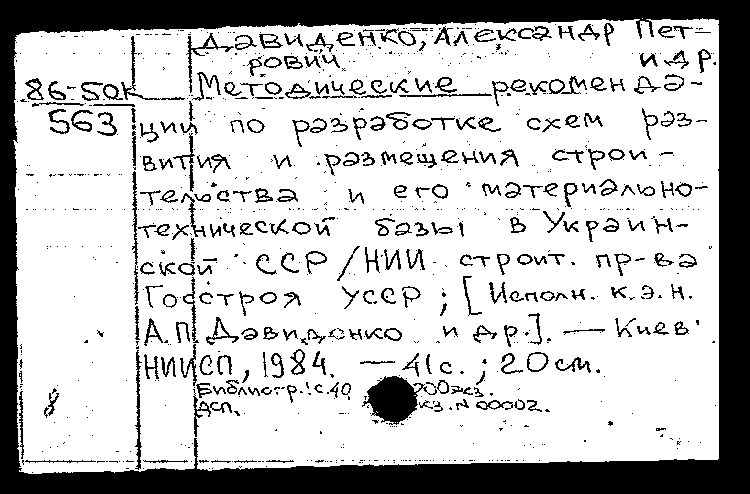 Давиденко, Александр Пет-
рович и др.
86-50к Методические рекоменда-
563 ции по разработке схем раз-
вития и размещения строи-
тельства и его материально-
технической базы в Украин-
ской ССР / НИИ строит. пр-ва
Госстроя УССР ; [Исполн. к.э.н.
А.П. Давиденко и др.]. — Киев
НИИСП, 1984. — 41 с. ; 20 см.
Библиогр.: с. 40 200 экз.
8 ДСП. кз. N 00002.